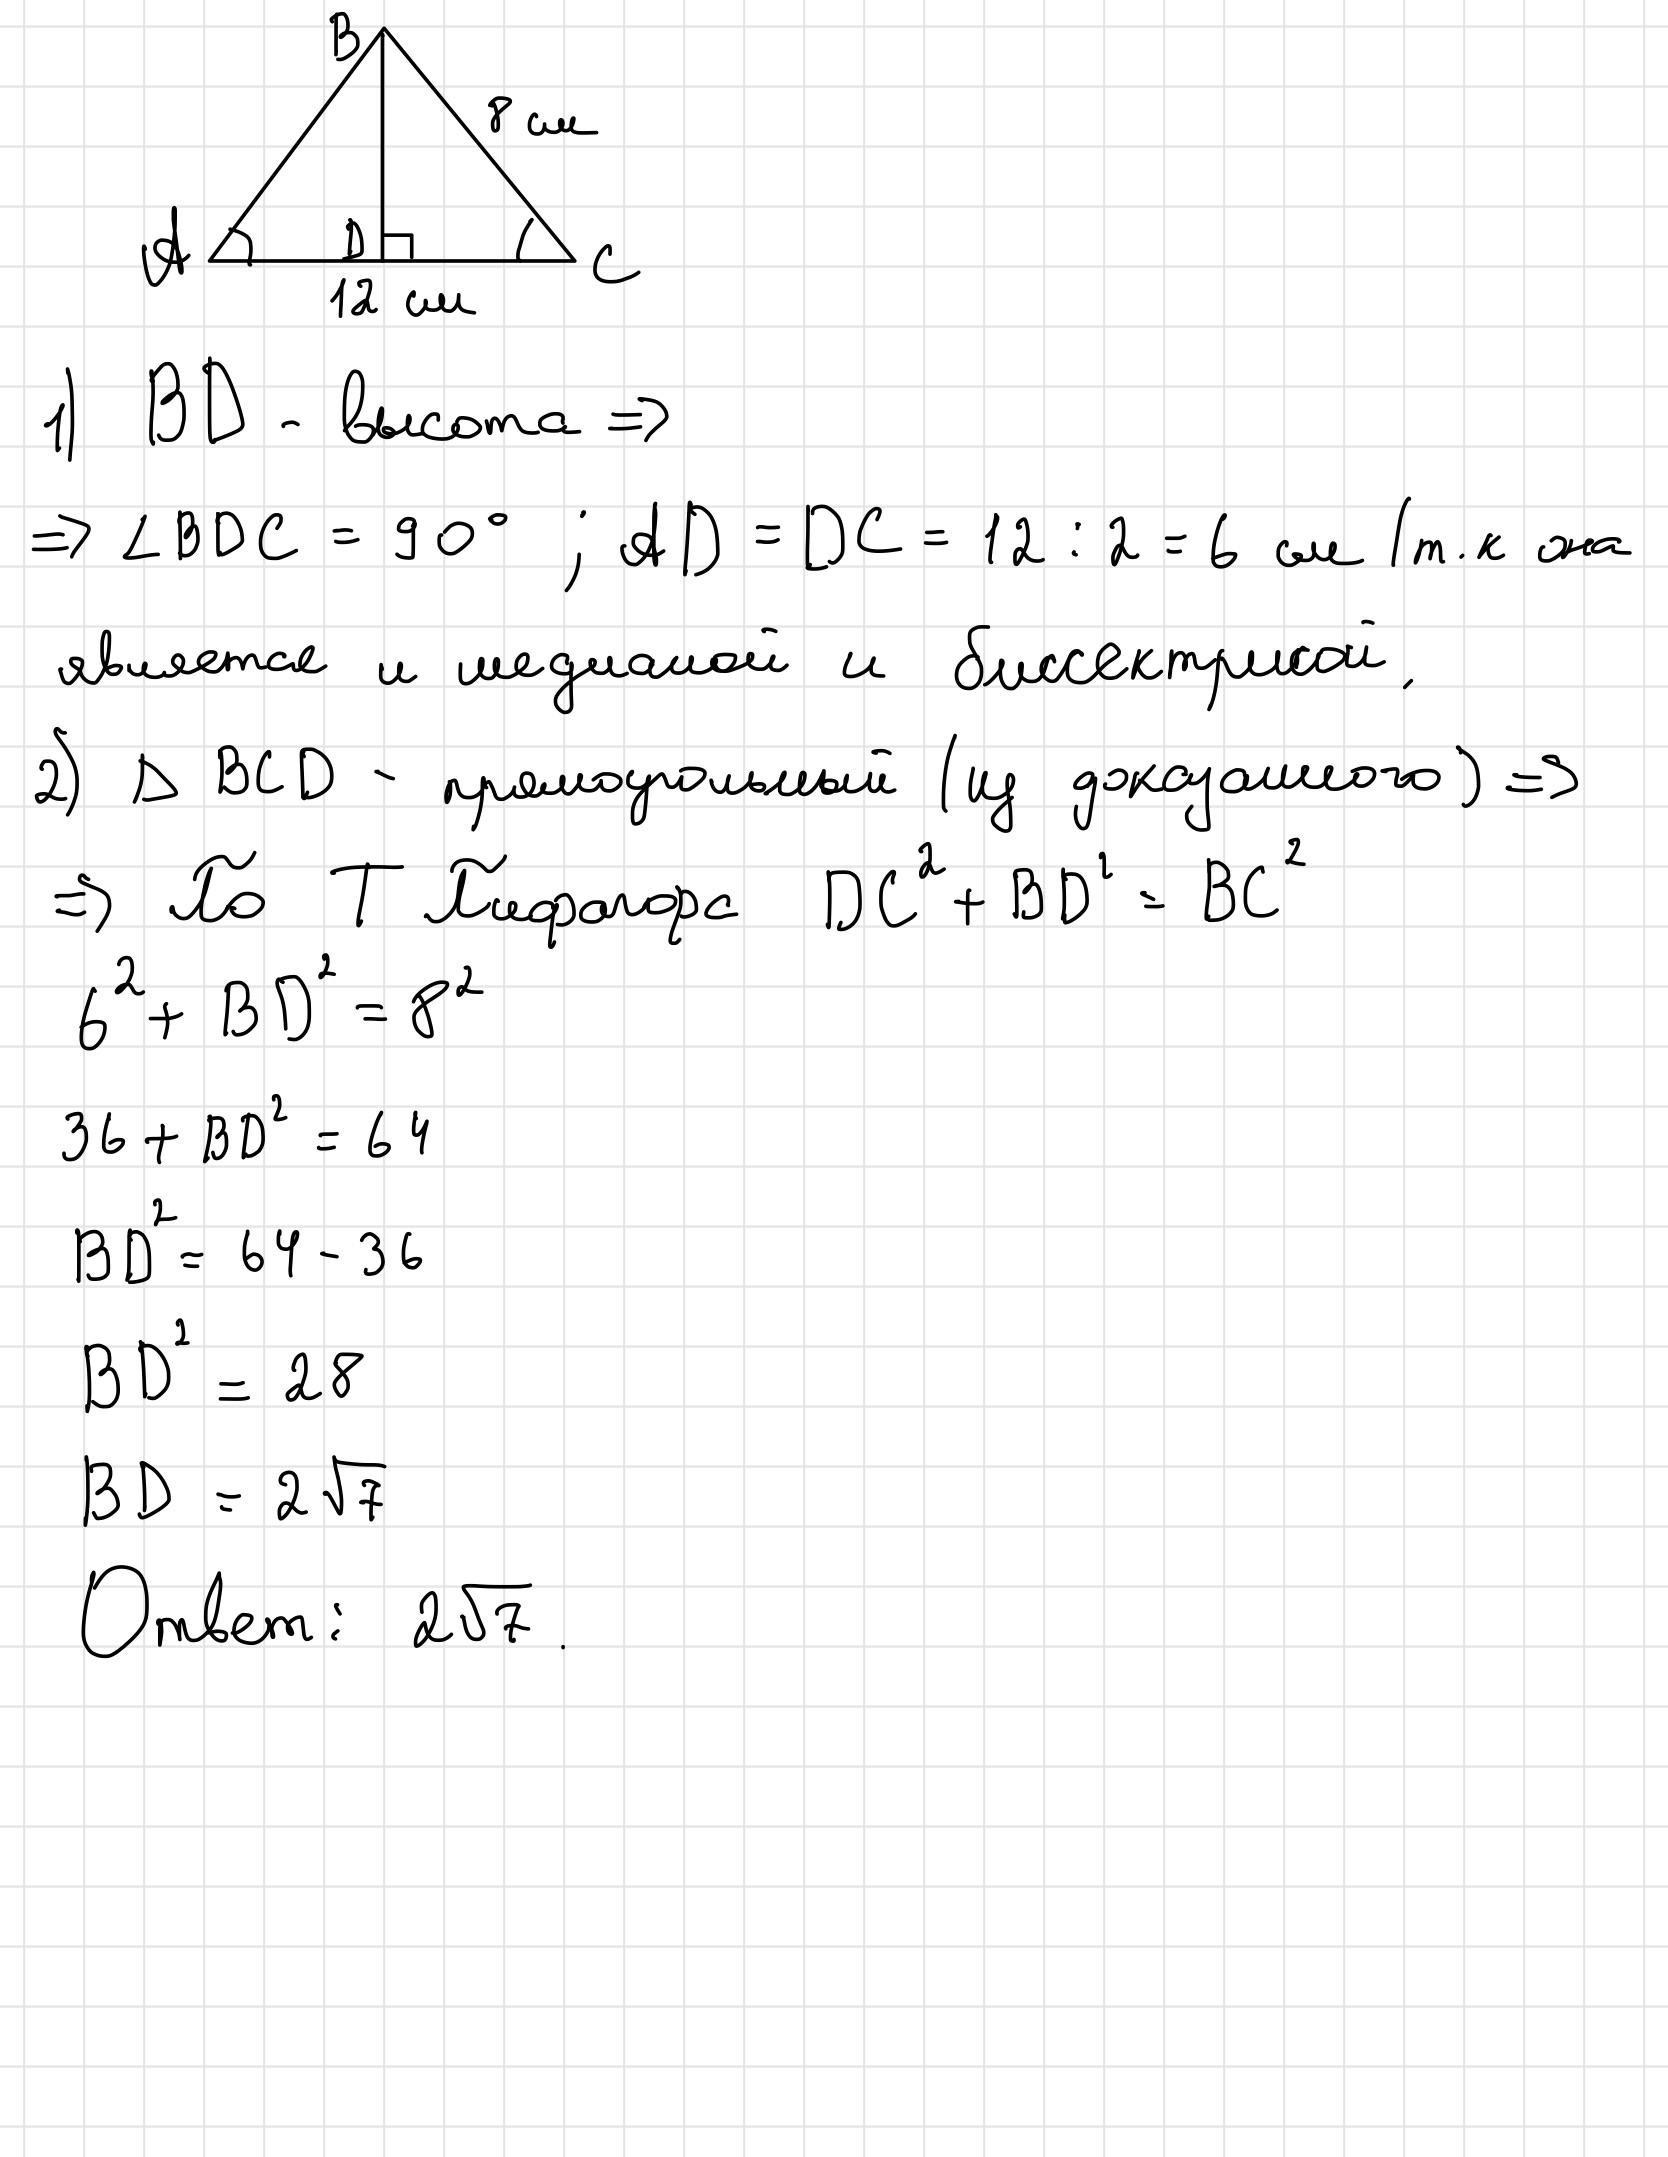 B
8 см
A
D
C
12 см
1) BD - высота =>
=> ∠BDC = 90° ; AD = DC = 12 : 2 = 6 см (т.к она
является и медианой и биссектрисой.
2) Δ BCD - прямоугольный (из доказанного) =>
=> По Т Пифагора DC² + BD² = BC²
6² + BD² = 8²
36 + BD² = 64
BD² = 64 - 36
BD² = 28
BD = 2√7
Ответ: 2√7.